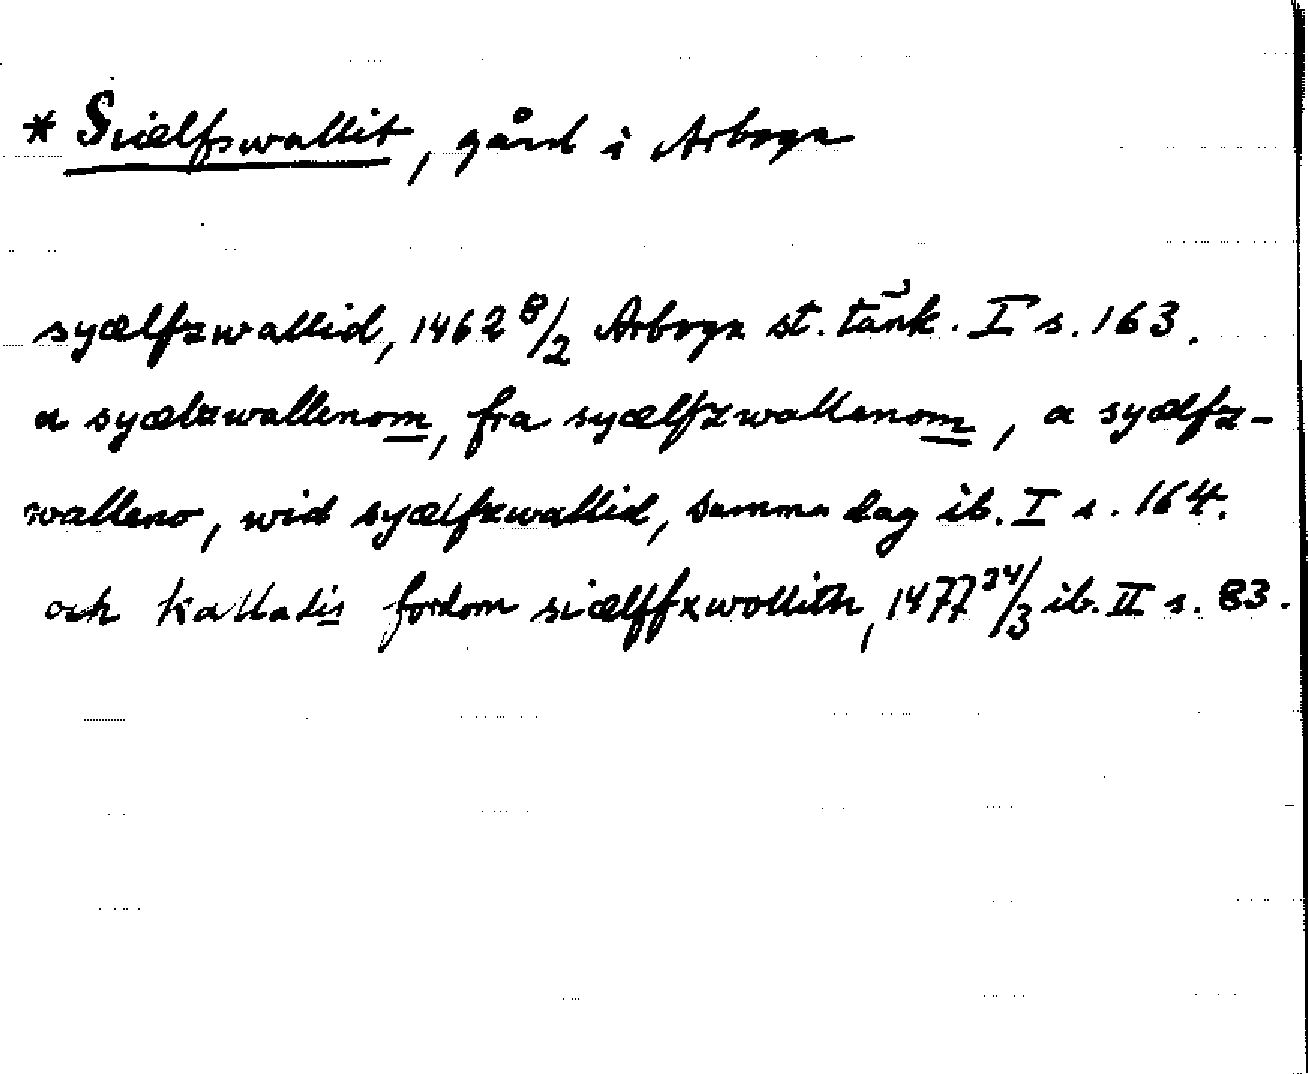 * Siælfswallit, gård i Arboga
syælfzwallid, 1462 8/2 Arboga st. tänk. I s. 163.
a syælzwallenom, fra syælfzwallenom, a syælfz-
walleno, wid syælfxwallid, samma dag ib. I s. 164.
och kalladis fordom siælffxwollith, 1477 24/3 ib. II s. 83.